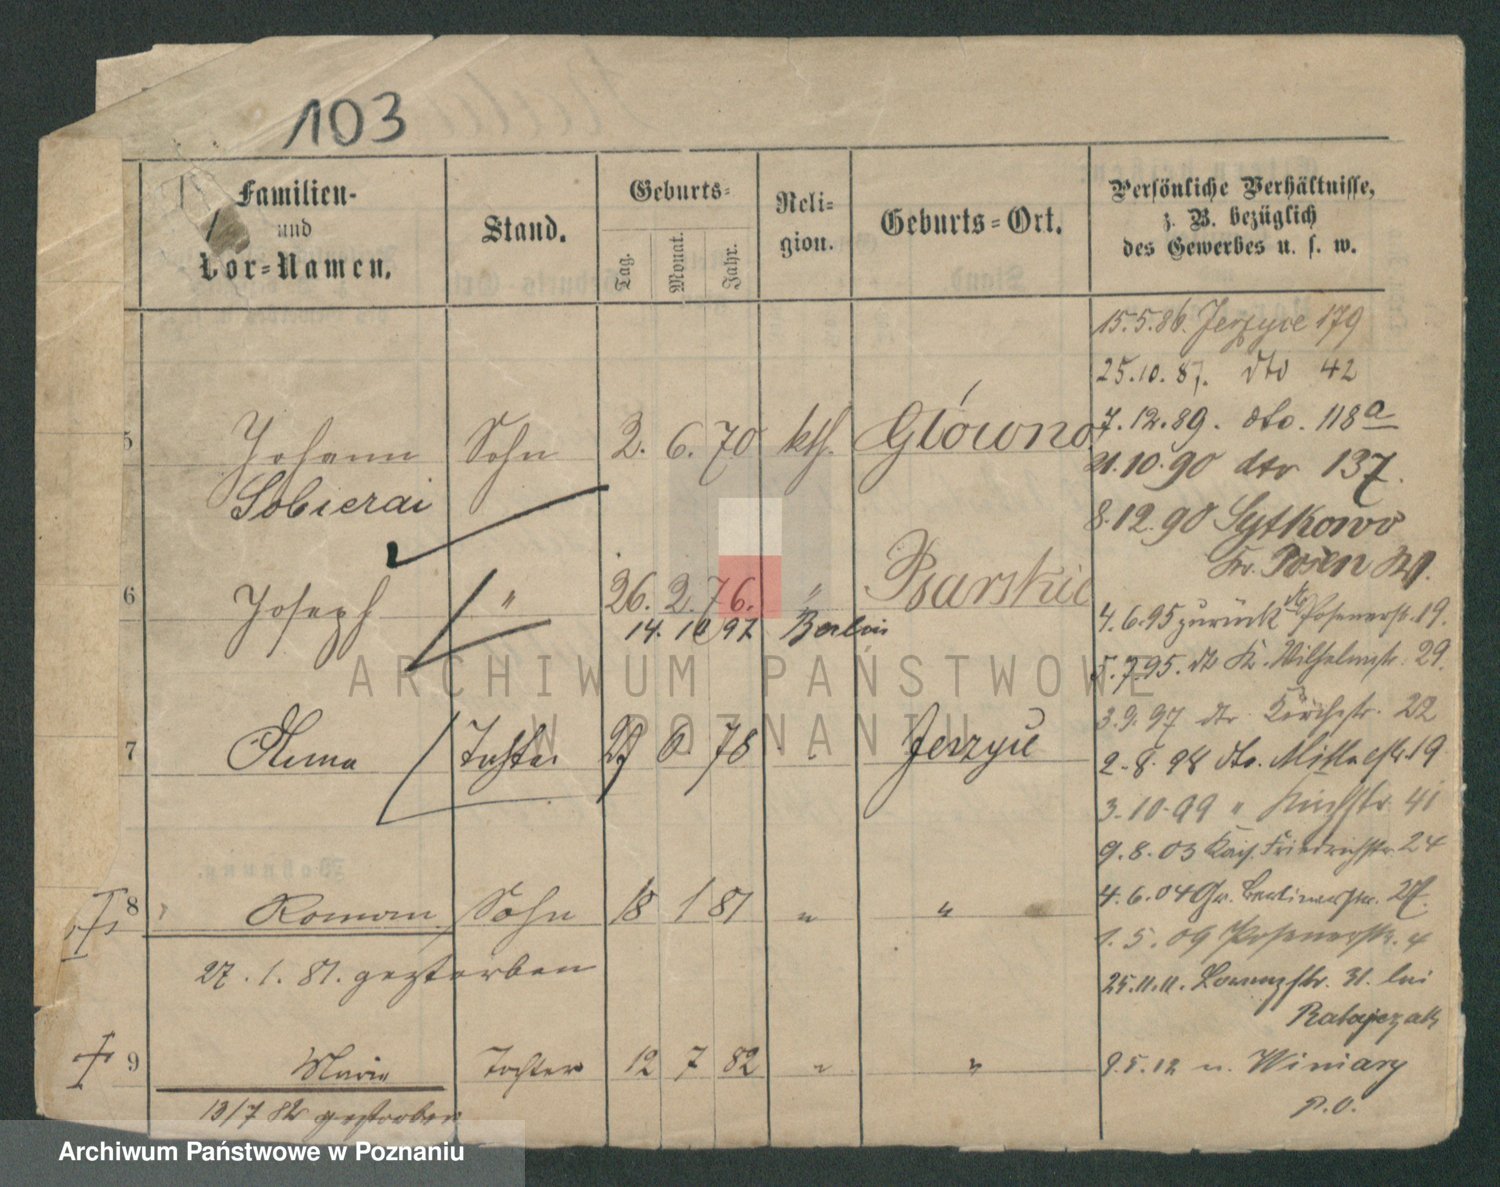 103
Familien- und Vor-Namen.
Stand.
Geburts-
Tag.
Monat.
Jahr.
Reli-
gion.
Geburts-Ort.
Persönliche Verhältnisse,
z. B. bezüglich
des Gewerbes u. s. w.
5 Johann Sohn 2. 6. 70 kth. Główno
Sobierai
6 Joseph " 26. 2. 76. " Psarskie
14. 10 97 Berlin
7 Tochter 27 6 78 " Jerzyce
8 Roman Sohn 18 1 81 " "
27. 1. 81. gestorben
9 Marie Tochter 12 7 82 " "
13/7 82 gestorben
15.5.86. Jerzyce 179
25.10.87. dto 42
7.12.89. dto. 118a
21.10.90 dto 137.
8.12.90 Sytkowo
Kr. Posen W.
4.6.95 zurück Posenerstr. 19.
5.7.95. dto K. Wilhelmstr. 29.
3.9.97 dto Kirchstr. 22
2.8.98 dto. 19
3.10.99 " Kirchstr. 41
9.8.03 Kais. Friedrichstr. 24
4.6.04 Gr. Berlinerstr. 27.
1.5.09 Posenerstr. 4
25.11.11. 31. bei
Ratajczak
9.5.12 n. Winiary
P.O.
ARCHIWUM PAŃSTWOWE
W POZNANIU
Archiwum Państwowe w Poznaniu